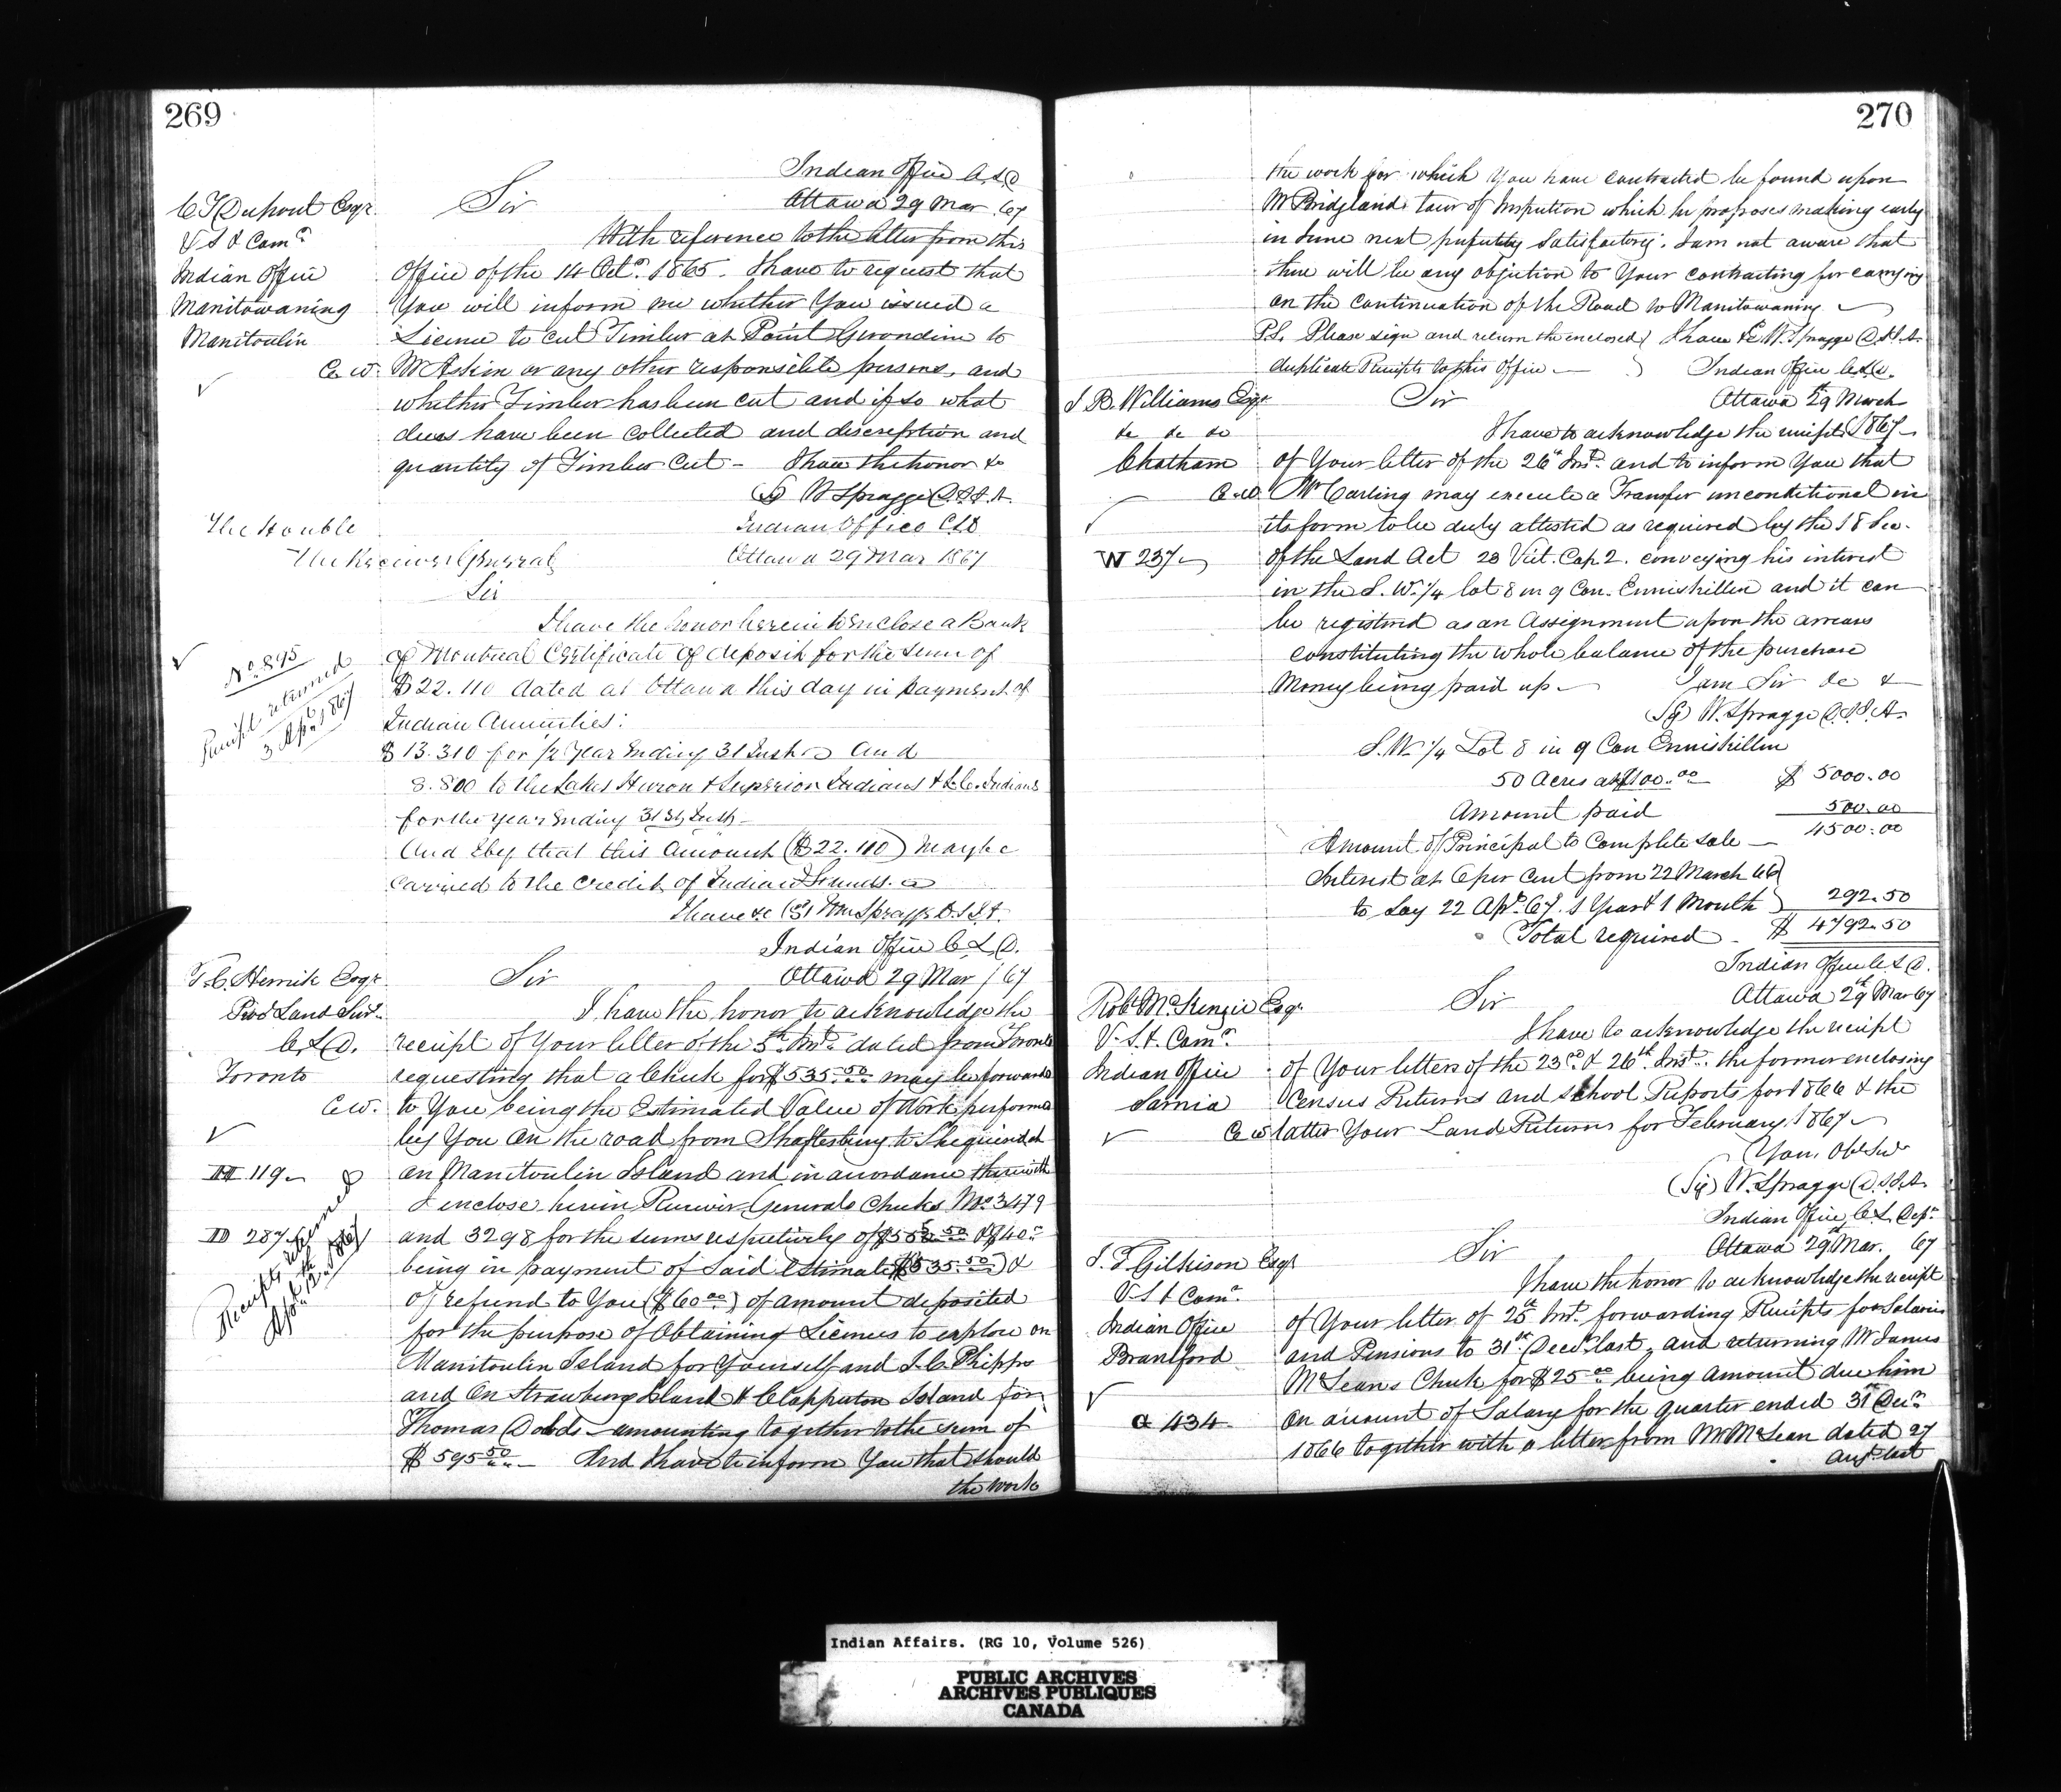 269
Indian Office C.L.D
Ottawa 29 Mar. 67
C T Dupont Esqr.
V S I Comr.
Indian Office
Manitowaning
Manitoulin
C. W.
Sir
With reference to the letter from this
Office of the 14 Octr. 1865. I have to request that
You will inform me whether You issued a
License to cut Timber at Point Gerondine to
Mr Askin or any other responsible persons, and
whether Timber has been cut and if so what
dues have been collected and description and
quantity of Timber Cut - I have the honor &c
(Sg) W Spragge D.S.I.A.
The Honble
The Receiver General
Indian Office C.L.D
Ottawa 29 Mar 1867
Sir
I have the honor herein to enclose a Bank
of Montreal Certificate of deposit for the sum of
$22.110 dated at Ottawa this day in payment of
Indian Annuities:
$13.310 for 1/2 Year Ending 31 Inst and
8.800 to the Lakes Huron & Superior Indians & L.C. Indians
for the year Ending 31st Inst -
And I beg that this Amount ($22.110) may be
Carried to the Credit of Indian Funds.
I have &c (Sg) Wm Spragge D.S.I.A.
No. 895
Receipt returned
3 Apr. 1867
Indian Office C.L.D.
Ottawa 29 Mar /67
T. C. Herrick Esqr.
Prov Land Sur.
C.L.D.
Toronto
C.W.
III 119
III 287
Receipts returned
April 12th 1867
Sir
I have the honor to acknowledge the
receipt of Your letter of the 5th Inst. dated from Toronto
requesting that a Check for $535.50 may be forwarded
to You being the Estimated Value of Work performed
by You on the road from Shaftesbury to Sheguiandah
on Manitoulin Island and in accordance therewith
I enclose herein Receiver Generals Checks No. 3479
and 3298 for the sums respectively of $555.50 & $40.
being in payment of said Estimate ($535.50) &
of refund to You ($60.00) of amount deposited
for the purpose of Obtaining Licenses to explore on
Manitoulin Island for Yourself and J. C. Phipps
and on Strawberry Island & Clapperton Island for
Thomas Dodds - amounting together to the sum of
$595.50 - And I have to inform You that should
the work
270
the work for which You have contracted be found upon
Mr Bridgland's tour of Inspection which he proposes making early
in June next perfectly satisfactory. I am not aware that
there will be any objection to Your contracting for carrying
on the continuation of the Road to Manitowaning
P.S. Please sign and return the enclosed
duplicate Receipts to this Office -
I have &c W. Spragge D.S.I.A.
Indian Office C.L.D.
Ottawa 29th March
1867
J B. Williams Esqr
&c &c &c
Chatham
C.W.
W 237
Sir
I have to acknowledge the receipt
of Your letter of the 26th Inst. and to inform You that
Mr Carling may execute a Transfer unconditional in
its form to be duly attested as required by the 18 Sec.
of the Land Act 23 Vict. Cap 2. conveying his interest
in the S.W. 1/4 lot 8 in 9 Con. Enniskillen and it can
be registered as an Assignment upon the arrears
constituting the whole balance of the purchase
Money being paid up - I am Sir &c &
(Sg) W. Spragge D.S.I.A.
S.W. 1/4 Lot 8 in 9 Con Enniskillen
50 Acres at $100.00 $ 5000.00
Amount paid 500.00
Amount of Principal to Complete sale - 4500.00
Interest at 6 per cent from 22 March 66
to say 22 Apl. 67. 1 Year & 1 Month 292.50
Total required - $ 4792.50
Indian Office C.L.D.
Ottawa 29th Mar 67
Robt McKenzie Esqr
V. S. I. Comr.
Indian Office
Sarnia
C W
Sir
I have to acknowledge the receipt
of Your letters of the 23rd & 26th Inst. the former enclosing
Census Returns and School Reports for 1866 & the
latter Your Land Returns for February 1867
Your Obt Ser
(Sg) W. Spragge D.S.I.A.
Indian Office C.L. Dept
Ottawa 29th Mar. 67
J. T. Gilkison Esqr
V.S I Comr.
Indian Office
Brantford
G 434
Sir
I have the honor to acknowledge the receipt
of Your letter of 25th Inst. forwarding Receipts for Salaries
and Pensions to 31st Decr last, and returning Mr James
McLean's Check for $25.00 being amount due him
on account of Salary for the quarter ended 31st Decr.
1866 together with a letter from Mr McLean dated 27
Augt last
Indian Affairs. (RG 10, Volume 526)
PUBLIC ARCHIVES
ARCHIVES PUBLIQUES
CANADA